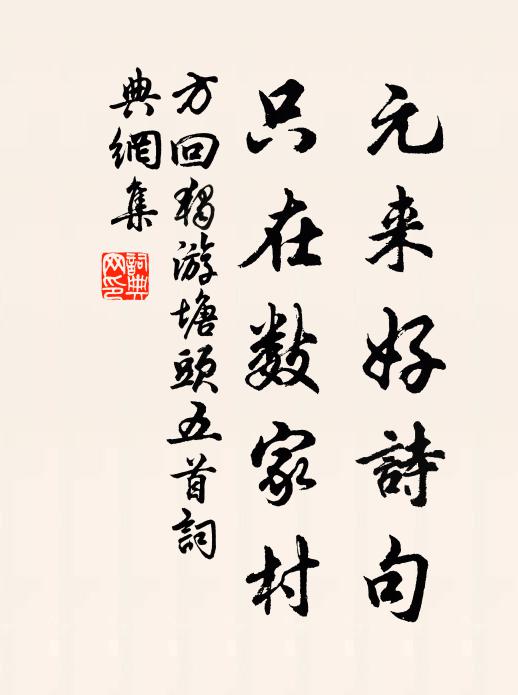 元来好詩句
只在数家村
方回獨游塘頭五首詞
典網集
詞典
网印